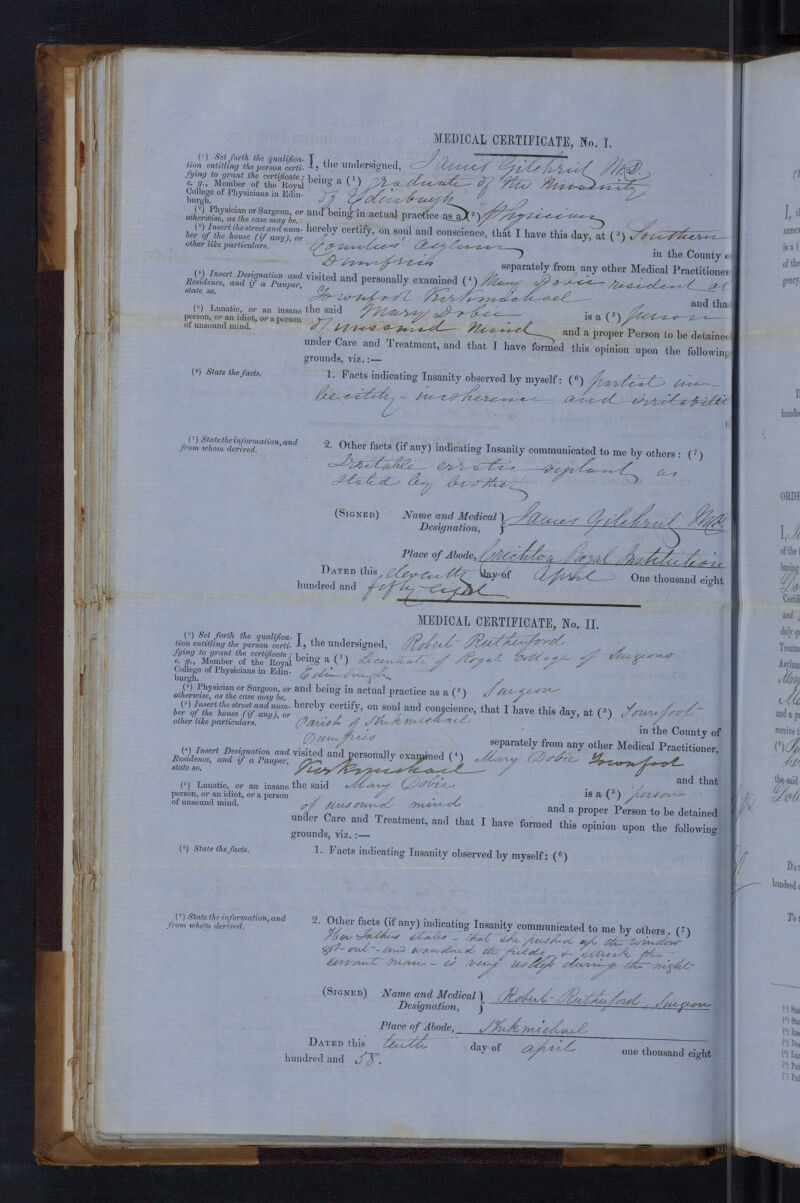 MEDICAL CERTIFICATE, No. I.
(¹) Set forth the qualifica-
tion entitling the person certi-
fying to grant the certificate;
e. g., Member of the Royal
College of Physicians in Edin-
burgh.
I, the undersigned, James Gilchrist M.D.
being a (¹) Graduate of the University
of Edinburgh
(²) Physician or Surgeon, or
otherwise, as the case may be.
and being in actual practice as a (²) Physician
(³) Insert the street and num-
ber of the house (if any), or
other like particulars.
hereby certify, on soul and conscience, that I have this day, at (³) Southern
Counties' Asylum in the County o
Dumfries separately from any other Medical Practitioner
(⁴) Insert Designation and
Residence, and if a Pauper,
state so.
visited and personally examined (⁴) Mary Dobie resident at
Townfoot Kirkmichael and tha
(⁵) Lunatic, or an insane
person, or an idiot, or a person
of unsound mind.
the said Mary Dobie is a (⁵) person
of unsound mind and a proper Person to be detained
under Care and Treatment, and that I have formed this opinion upon the following
grounds, viz.:—
(⁶) State the facts.
1. Facts indicating Insanity observed by myself: (⁶) partial im-
becility - incoherence and irritabilit
(⁷) State the information, and
from whom derived.
2. Other facts (if any) indicating Insanity communicated to me by others: (⁷)
Irritable erratic as
stated by brother
(SIGNED) Name and Medical
Designation, } James Gilchrist M.D.
Place of Abode, Crichton Royal Institution
DATED this eleventh day of April One thousand eight
hundred and fifty-eight
MEDICAL CERTIFICATE, No. II.
(¹) Set forth the qualifica-
tion entitling the person certi-
fying to grant the certificate;
e. g., Member of the Royal
College of Physicians in Edin-
burgh.
I, the undersigned, Robert Rutherford
being a (¹) Licentiate of Royal College of Surgeons
Edinburgh
(²) Physician or Surgeon, or
otherwise, as the case may be.
and being in actual practice as a (²) Surgeon
(³) Insert the street and num-
ber of the house (if any), or
other like particulars.
hereby certify, on soul and conscience, that I have this day, at (³) Townfoot
Parish of Kirkmichael in the County of
Dumfries separately from any other Medical Practitioner,
(⁴) Insert Designation and
Residence, and if a Pauper,
state so.
visited and personally examined (⁴) Mary Dobie Townfoot
Kirkmichael and that
(⁵) Lunatic, or an insane
person, or an idiot, or a person
of unsound mind.
the said Mary Dobie is a (⁵) person
of unsound mind and a proper Person to be detained
under Care and Treatment, and that I have formed this opinion upon the following
grounds, viz.:—
(⁶) State the facts.
1. Facts indicating Insanity observed by myself: (⁶)
(⁷) State the information, and
from whom derived.
2. Other facts (if any) indicating Insanity communicated to me by others. (⁷)
Her Father states - that she pushed up the window
got-out - and wandered the fields, & struck the
servant man - is very restless during the night-
(SIGNED) Name and Medical
Designation, } Robert Rutherford, Surgeon
Place of Abode, Kirkmichael
DATED this tenth day of April one thousand eight
hundred and 58.